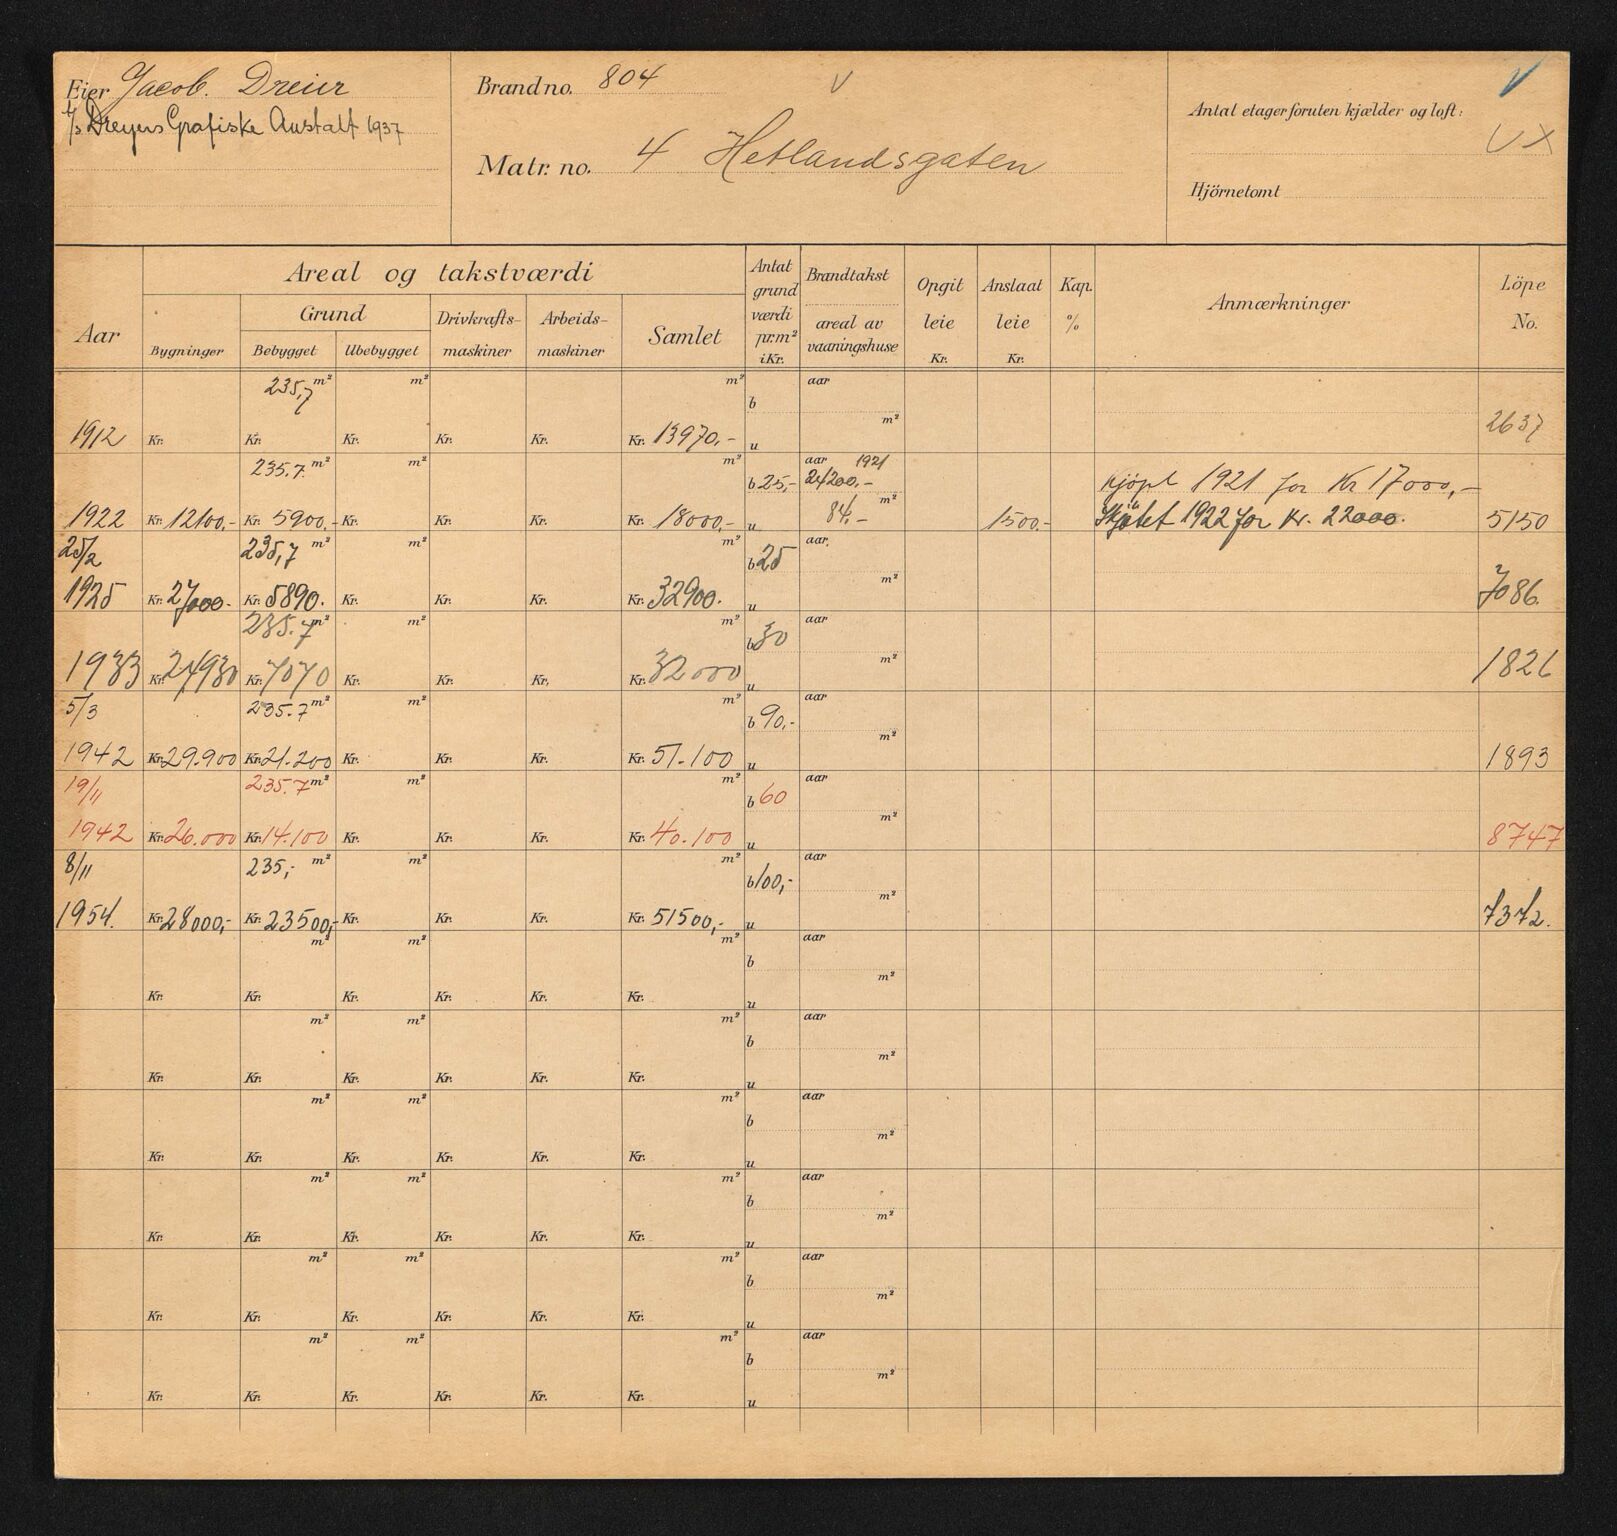 Eier Jacob. Dreier
A/s Dreyers Grafiske Anstalt 1937
Brand no. 804
V
Matr. no. 4 Hetlandsgaten
V
Antal etager foruten kjælder og loft:
V X
Hjörnetomt
Aar
Areal og takstværdi
Bygninger
Grund
Bebygget Ubebygget
Drivkrafts-maskiner
Arbeids-maskiner
Samlet
Antat grund værdi pr.m² i Kr.
Brandtakst
areal av vaaningshuse
Opgit leie Kr.
Anslaat leie Kr.
Kap. %
Anmærkninger
Löpe No.
235,7 m² m² m² b aar
1912 Kr. Kr. Kr. Kr. Kr. Kr. 13970,- u m² 2637
235.7 m² m² m² b 25,- aar 1921 24200,- kjöpt 1921 for Kr 17000,-
1922 Kr. 12100,- Kr. 5900,- Kr. Kr. Kr. Kr. 18000,- u 84,- m² 1500,- Skjötet 1922 for Kr. 22000. 5150
25/2 235,7 m² m² m² b 25 aar
1925 Kr. 27000.- Kr. 5890. Kr. Kr. Kr. Kr. 32900. u m² 7086.
235.7 m² m² m² b 30 aar
1933 Kr. 24930 Kr. 7070 Kr. Kr. Kr. Kr. 32000 u m² 1826
5/3 235.7 m² m² m² b 90,- aar
1942 Kr. 29.900 Kr. 21.200 Kr. Kr. Kr. Kr. 51.100 u m² 1893
19/11 235.7 m² m² m² b 60 aar
1942 Kr. 26.000 Kr. 14.100 Kr. Kr. Kr. Kr. 40.100 u m² 8747
8/11 235,- m² m² m² b 100,- aar
1954. Kr. 28000,- Kr. 23500,- Kr. Kr. Kr. Kr. 51500,- u m² 7372.
m² m² m² b aar
Kr. Kr. Kr. Kr. Kr. Kr. u m²
m² m² m² b aar
Kr. Kr. Kr. Kr. Kr. Kr. u m²
m² m² m² b aar
Kr. Kr. Kr. Kr. Kr. Kr. u m²
m² m² m² b aar
Kr. Kr. Kr. Kr. Kr. Kr. u m²
m² m² m² b aar
Kr. Kr. Kr. Kr. Kr. Kr. u m²
m² m² m² b aar
Kr. Kr. Kr. Kr. Kr. Kr. u m²